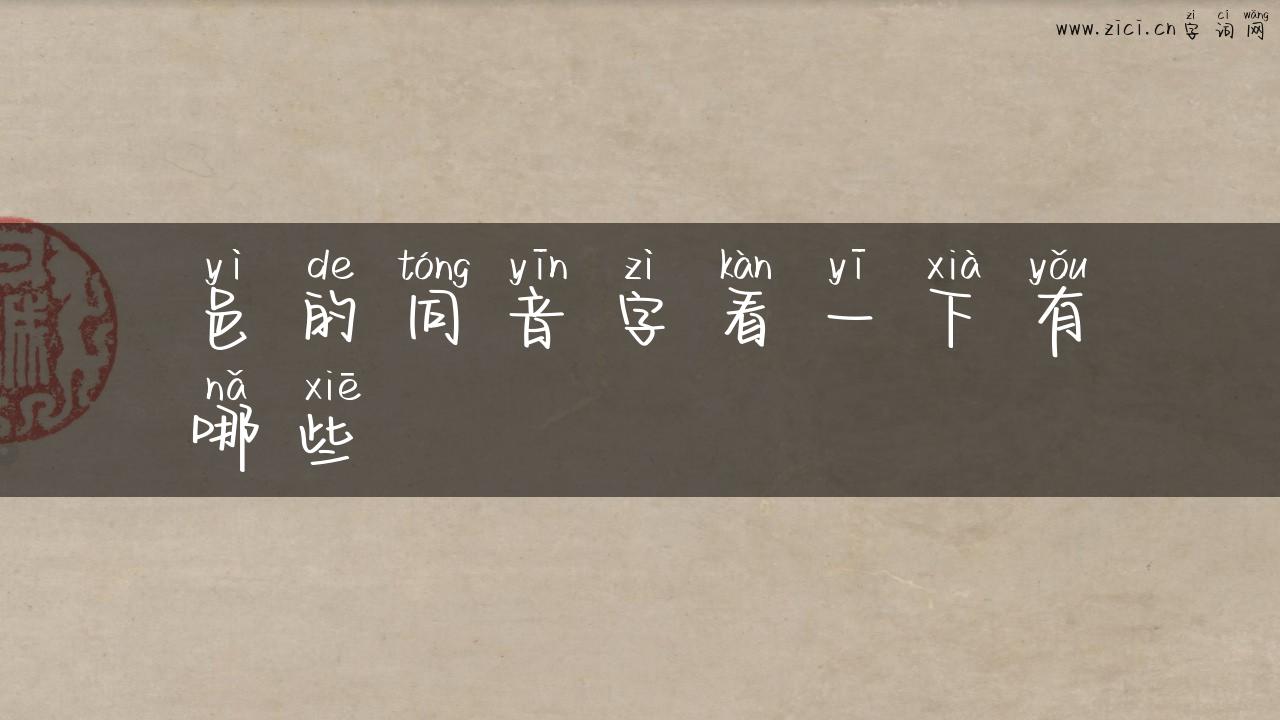 zì cí wǎng
www.zici.cn 字词网
yì de tóng yīn zì kàn yī xià yǒu
邑的同音字看一下有
nǎ xiē
哪些